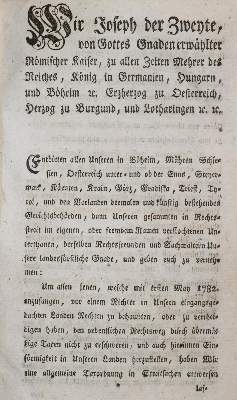 Wir Joseph der Zweyte,
von Gottes Gnaden erwählter
Römischer Kaiser, zu allen Zeiten Mehrer des
Reiches, König in Germanien, Hungarn,
und Böheim ꝛc. Erzherzog zu Oesterreich,
Herzog zu Burgund, und Lotharingen ꝛc. ꝛc.
Entbieten allen Unseren in Böheim, Mähren Schle-
sien, Oesterreich unter- und ob der Enns, Steyer-
mark, Kärnten, Krain, Görz, Gradiska, Triest, Ty-
rol, und den Vorlanden dermalen und künftig bestehenden
Gerichtsbehörden, dann Unseren gesammten in Rechts-
streit im eigenen, oder fremdem Namen verflochtenen Un-
terthanen, derselben Rechtsfreunden und Sachwaltern Un-
sere landesfürstliche Gnade, und geben euch zu verneh-
men:
Um allen jenen, welche mit ersten May 1782.
anzufangen, vor einem Richter in Unseren eingangsge-
dachten Landen Rechten zu behaupten, oder zu verthei-
digen haben, den ordentlichen Rechtsweg durch übermäs-
sige Taxen nicht zu erschweren, und auch hierinnen Ein-
förmigkeit in Unseren Landen herzustellen, haben Wir
eine allgemeine Taxordnung in Streitsachen entwerfen
las-